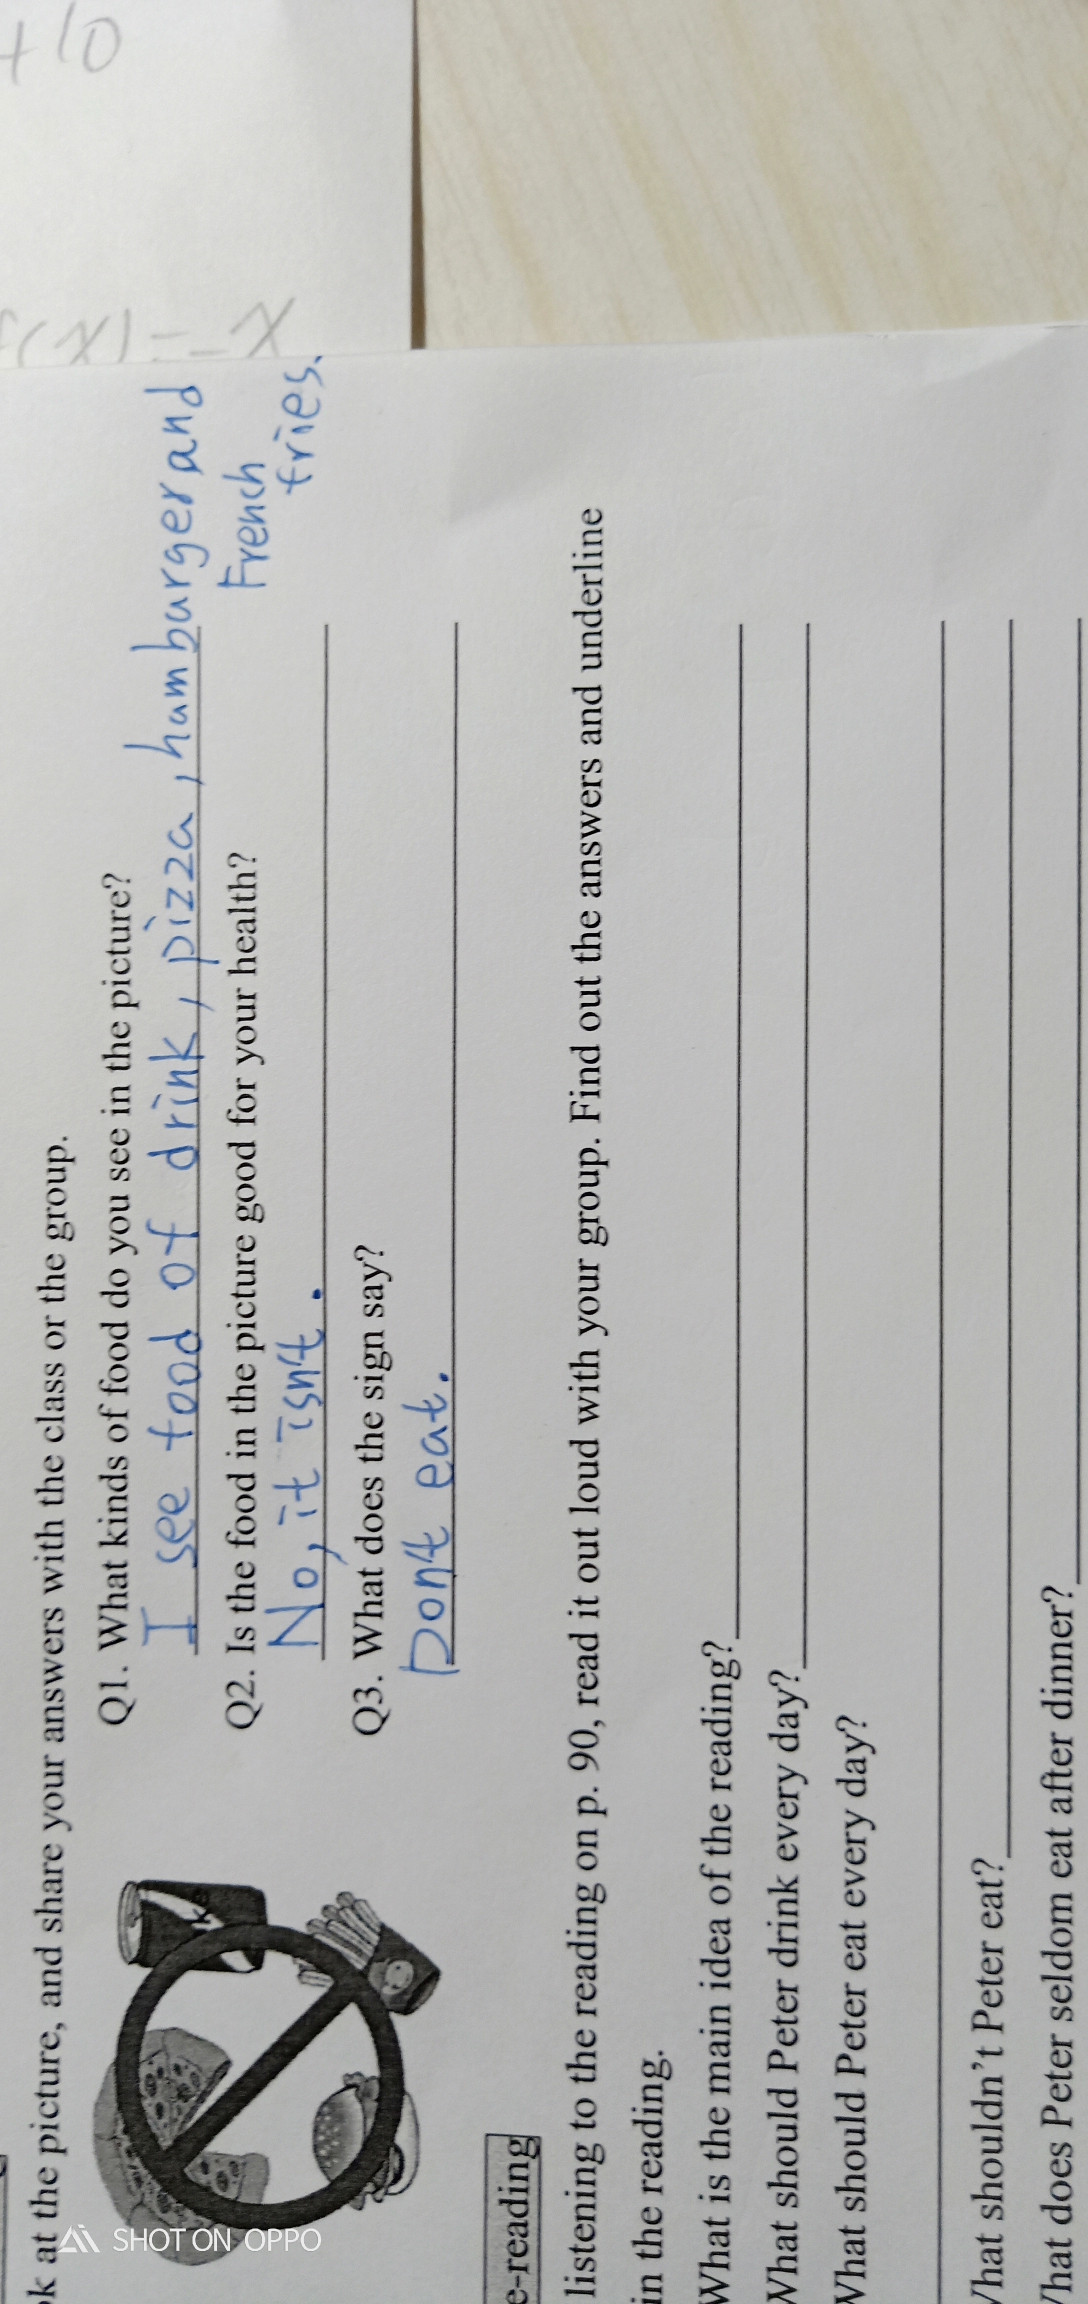 +10
f(x)=-x
ok at the picture, and share your answers with the class or the group.
Q1. What kinds of food do you see in the picture?
I see food of drink, pizza, hamburger and
French
fries.
Q2. Is the food in the picture good for your health?
No, it isn't.
Q3. What does the sign say?
Don't eat.
e-reading
listening to the reading on p. 90, read it out loud with your group. Find out the answers and underline
in the reading.
What is the main idea of the reading?
What should Peter drink every day?
What should Peter eat every day?
What shouldn't Peter eat?
What does Peter seldom eat after dinner?
SHOT ON OPPO